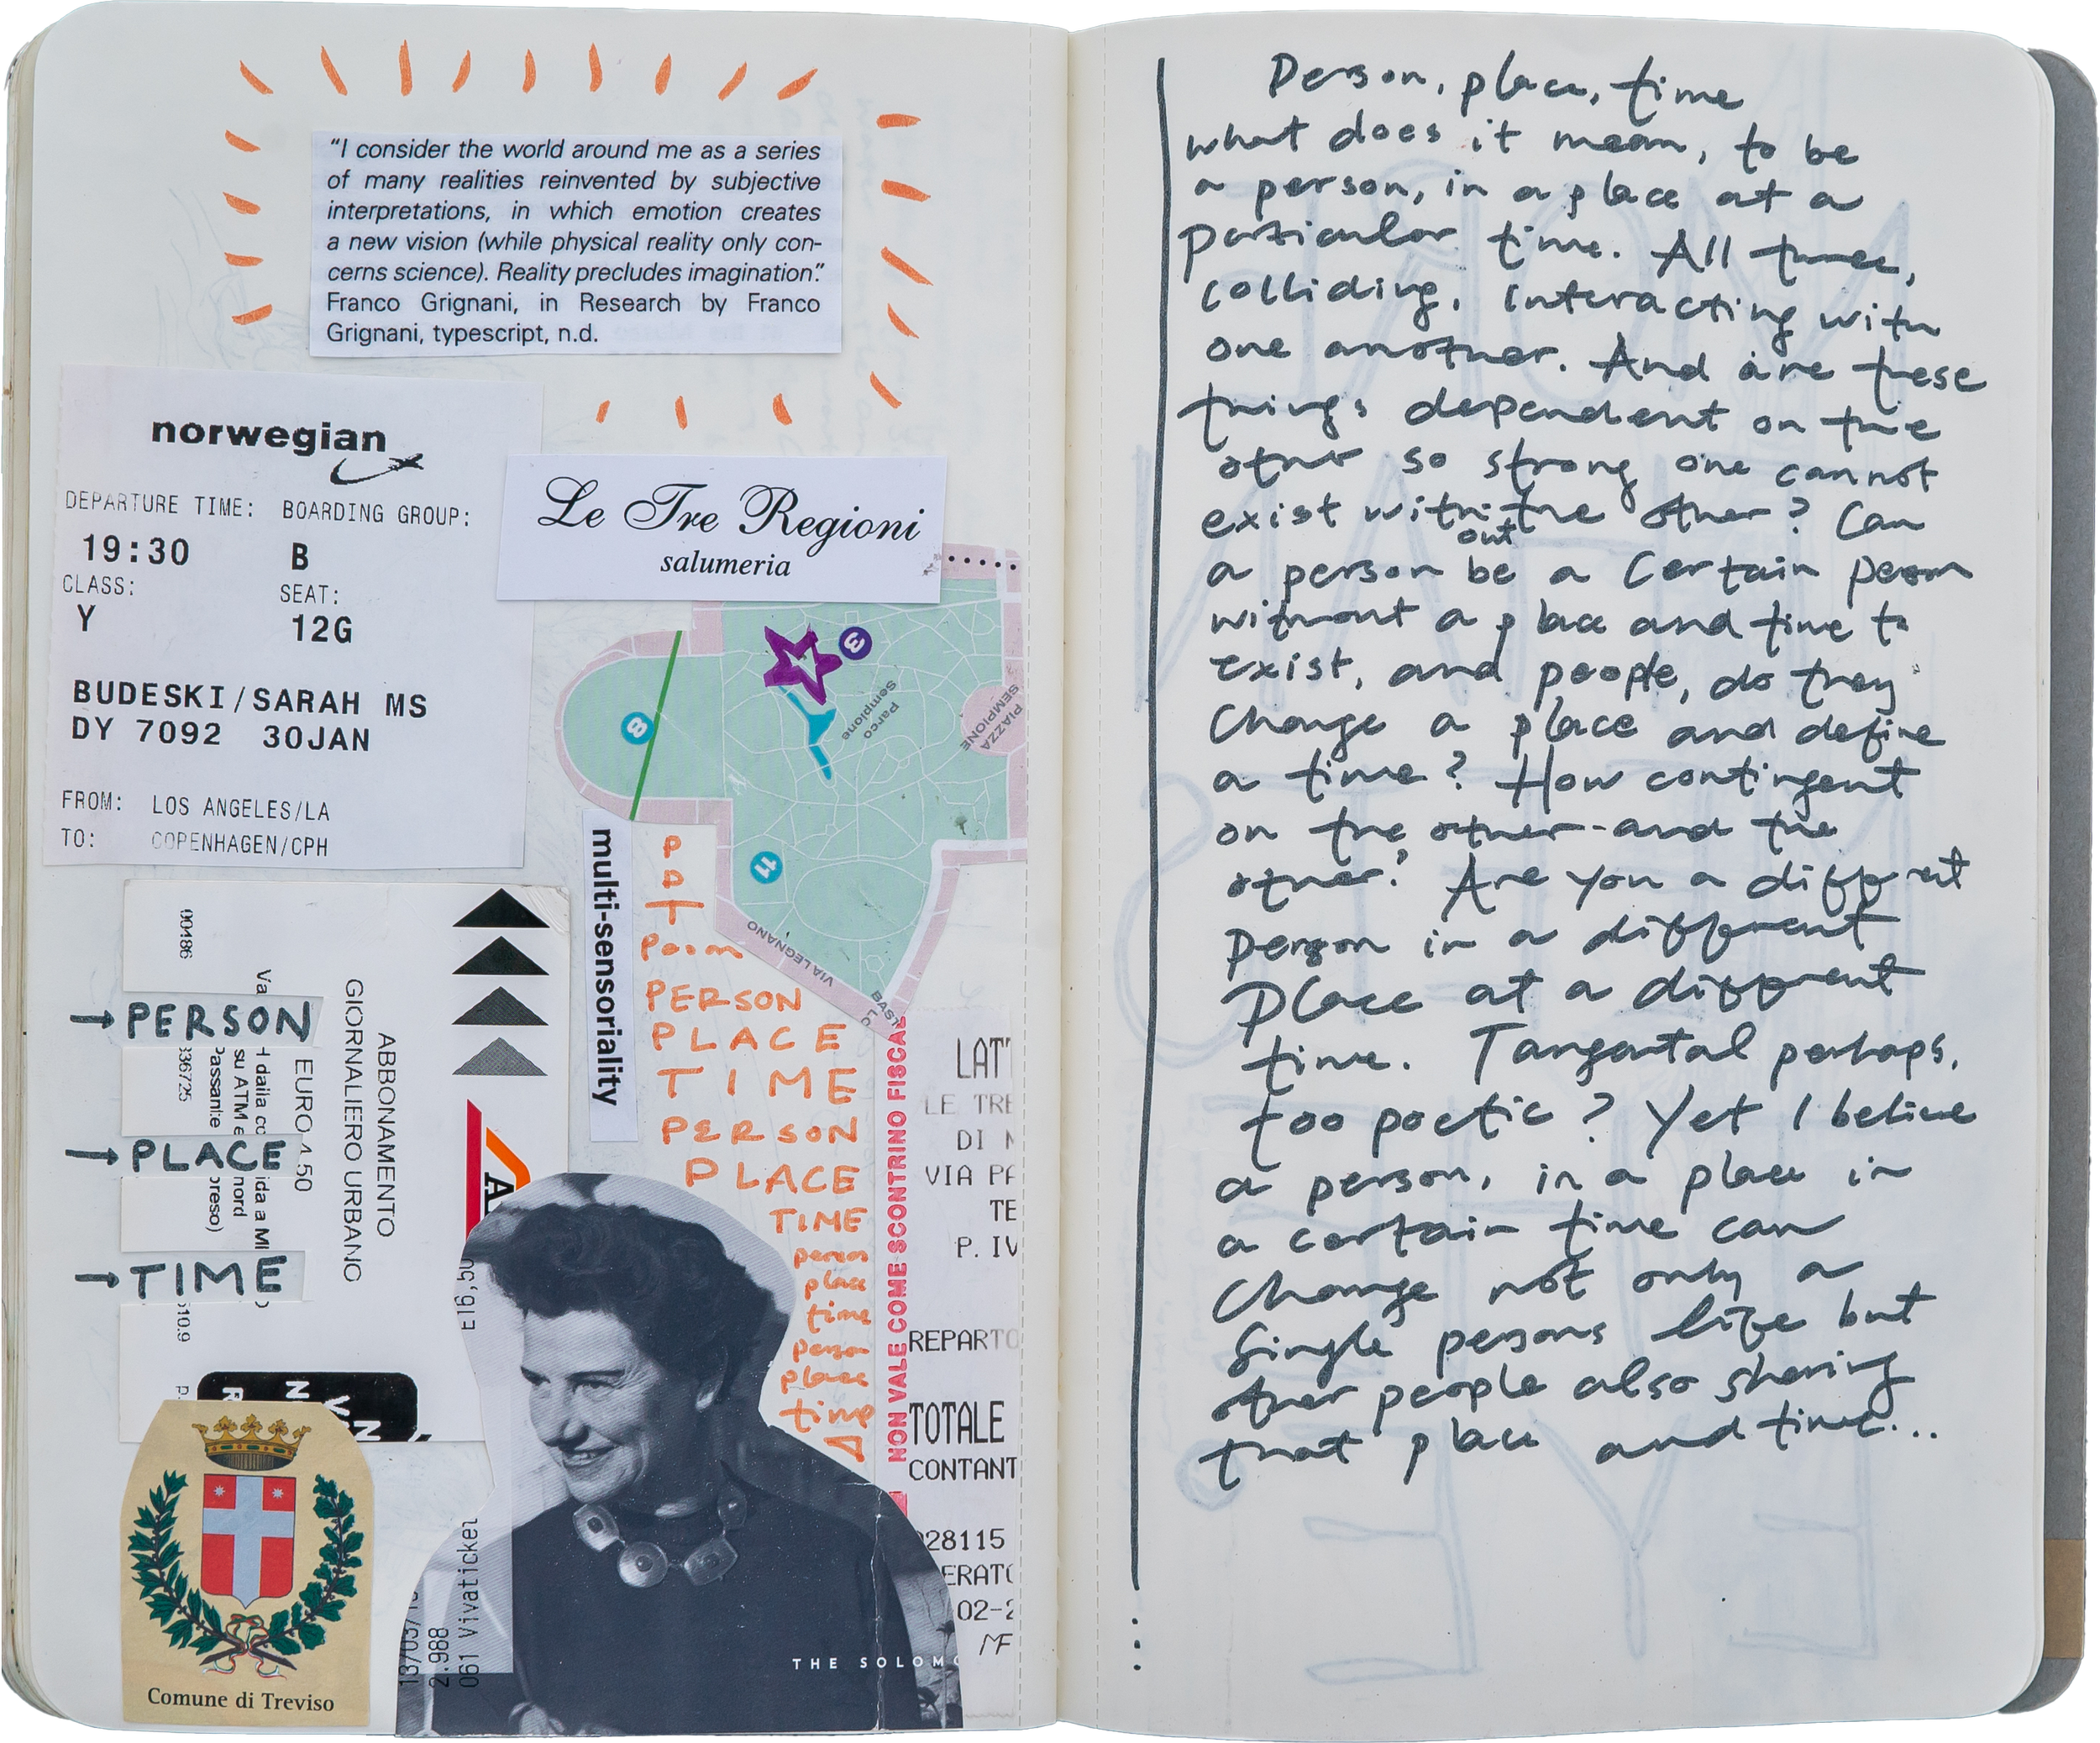 "I consider the world around me as a series
of many realities reinvented by subjective
interpretations, in which emotion creates
a new vision (while physical reality only con-
cerns science). Reality precludes imagination."
Franco Grignani, in Research by Franco
Grignani, typescript, n.d.
norwegian
DEPARTURE TIME: BOARDING GROUP:
19:30 B
CLASS: SEAT:
Y 12G
BUDESKI/SARAH MS
DY 7092 30JAN
FROM: LOS ANGELES/LA
TO: COPENHAGEN/CPH
Le Tre Regioni
salumeria
3
8
Parco
Sempione
PIAZZA
SEMPIONE
11
VIA LEGNANO
multi-sensoriality
P
P
T
PERSON
PLACE
TIME
PERSON
PLACE
TIME
person
place
time
person
place
time
00486
→PERSON
→PLACE
→TIME
ABBONAMENTO
GIORNALIERO URBANO
EURO 4.50
su ATM e
Passante
nord
preso)
336725
E16,50
061 Vivaticket
2.988
NON VALE COME SCONTRINO FISCAL
LATT
LE TRE
DI
VIA PA
TE
P. IV
REPARTO
TOTALE
CONTANT
28115
ERATO
02-2
MF
THE SOLOM
Comune di Treviso
Person, place, time
what does it mean, to be
a person, in a place at a
particular time. All three,
colliding, interacting with
one another. And are these
things dependent on the
other so strong one cannot
exist without the other? Can
a person be a certain person
without a place and time to
exist, and people, do they
change a place and define
a time? How contingent
on the other and the
other? Are you a different
person in a different
place at a different
time. Tangental perhaps,
too poetic? Yet I believe
a person, in a place in
a certain time can
change not only a
single persons life but
other people also sharing
that place and time...